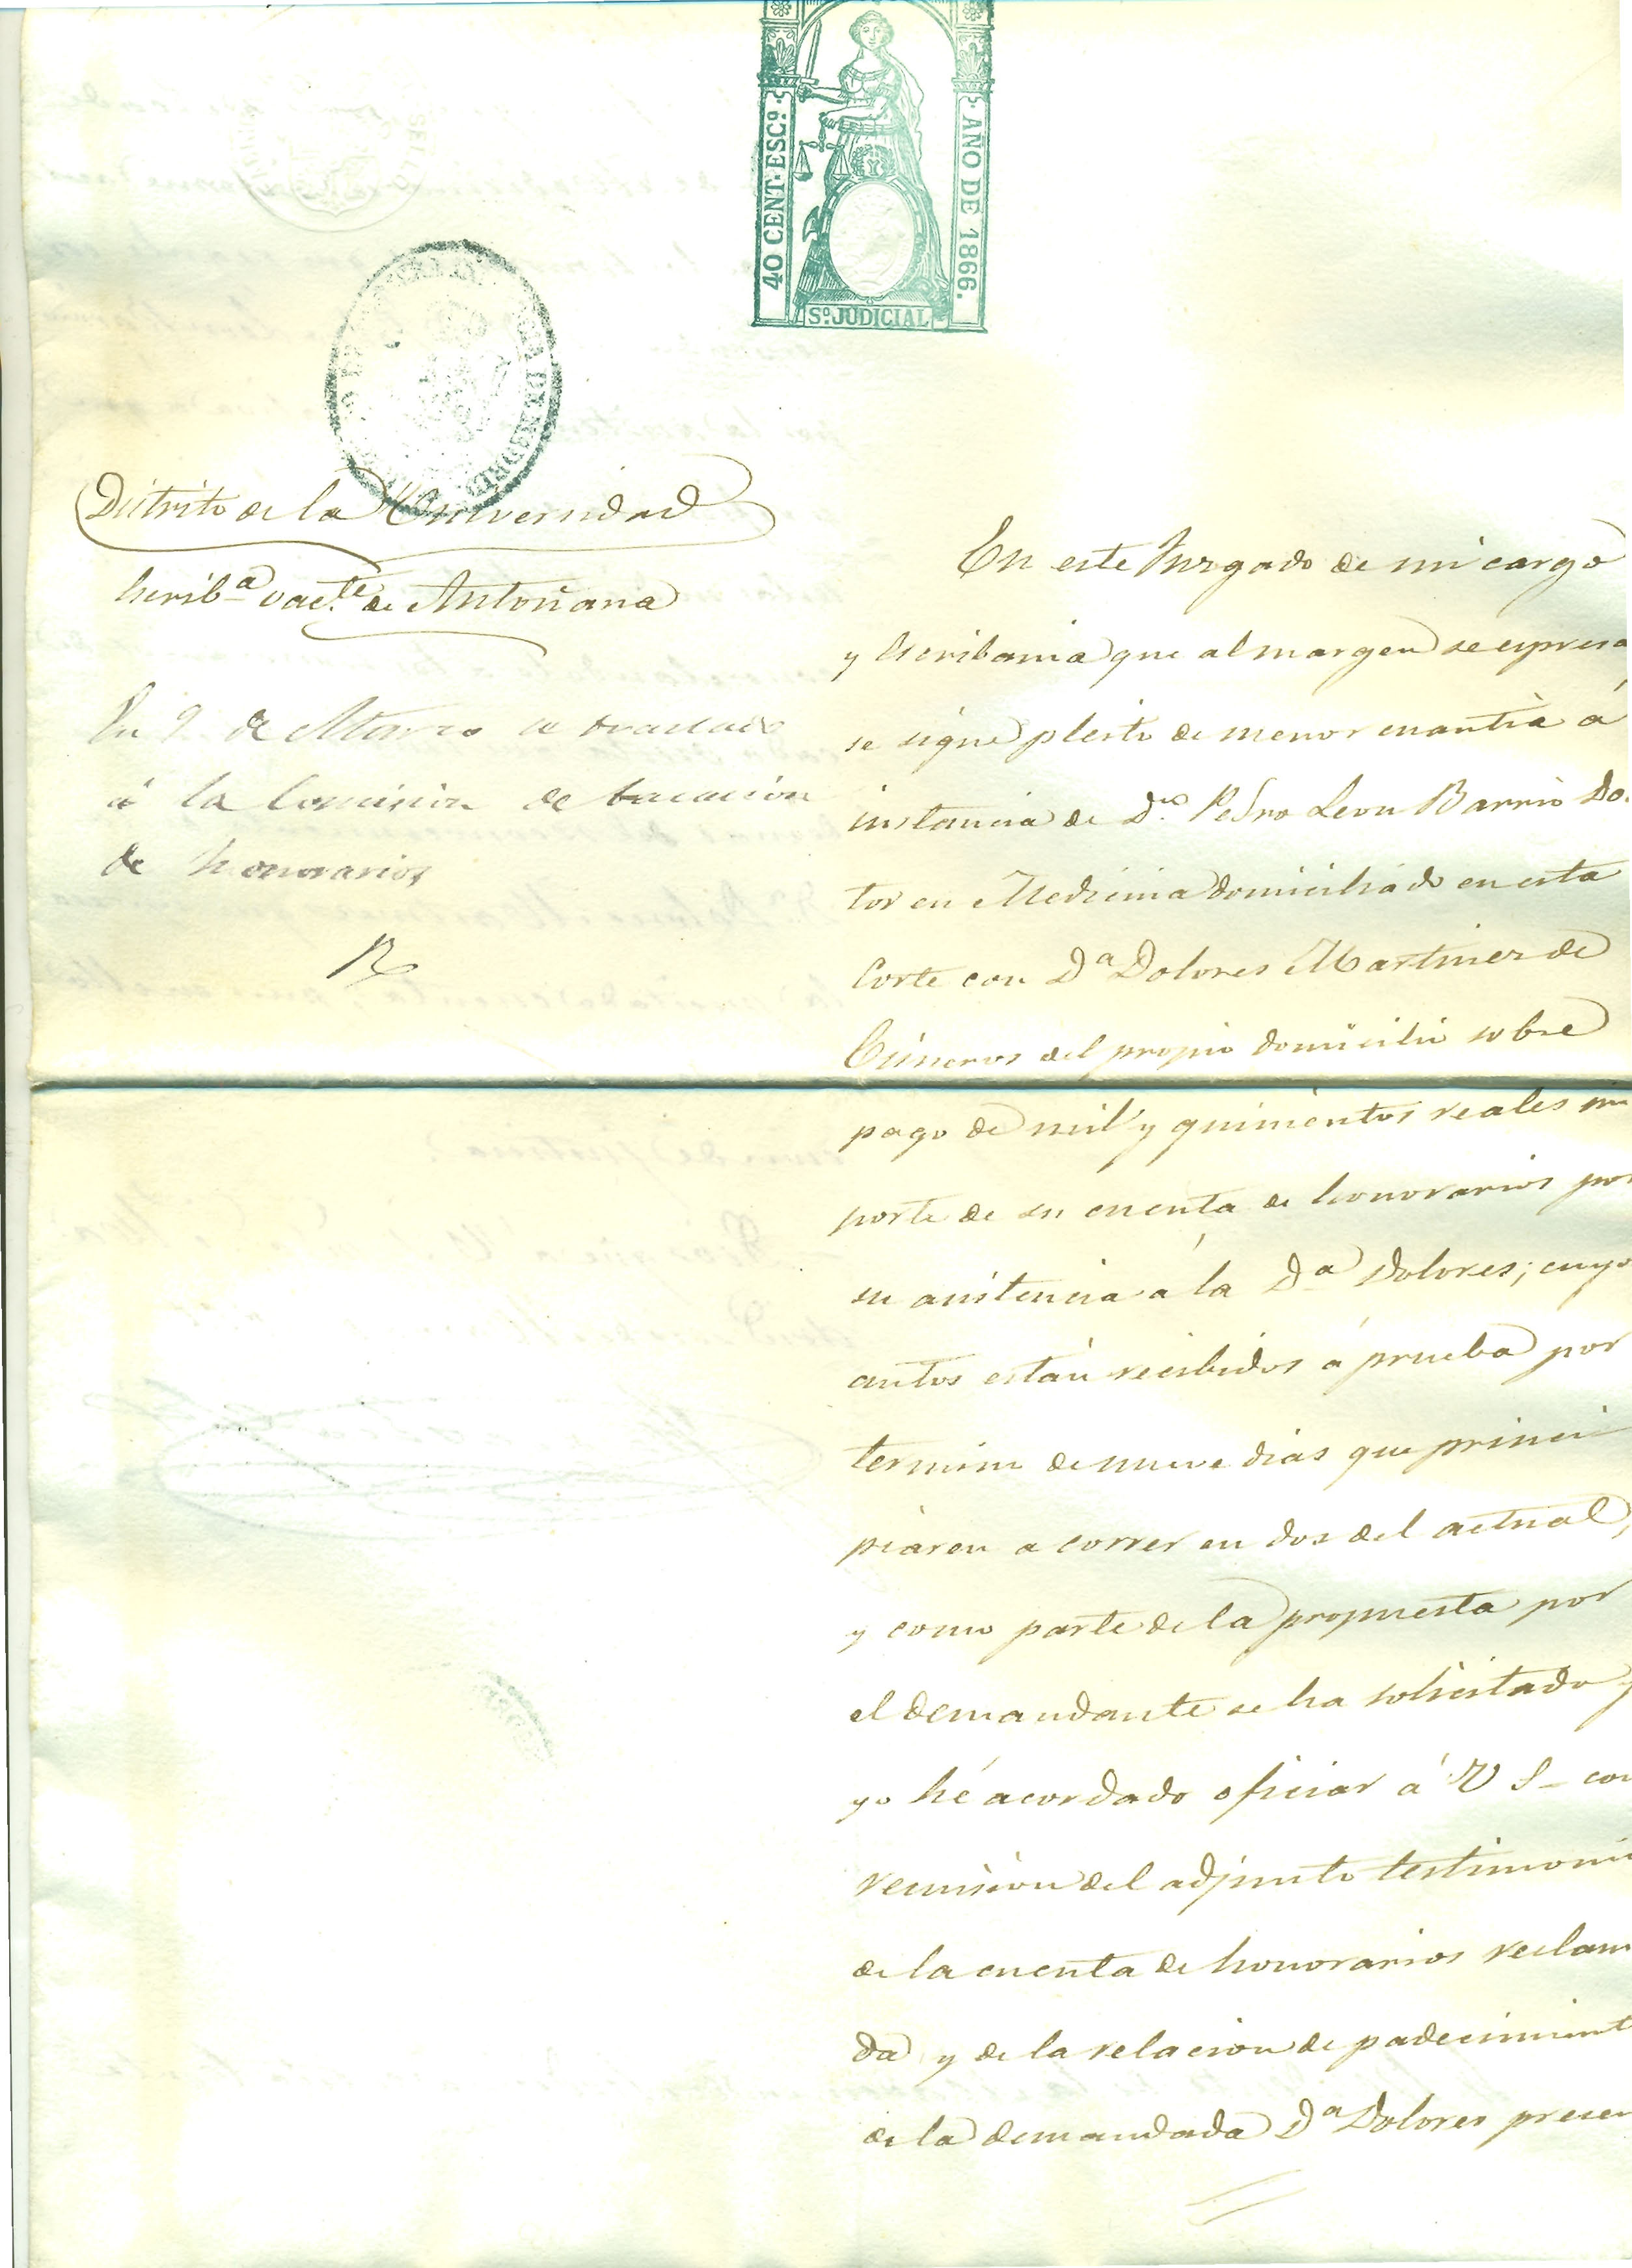 40 CENT. ESCº.
AÑO DE 1866.
Sº. JUDICIAL
Distrito de la Universidad
Escribª vacte. de Antoñana
En 9 de Marzo se trasladó
á la Comision de tasacion
de honorarios
En este Juzgado de mi cargo
y Escribania que al margen se espresa
se sigue pleito de menor cuantia á
instancia de Dn. Pedro Leon Barrio Do.
tor en Medicina domiciliado en esta
Corte con Dª Dolores Martinez de
Cisneros del propio domicilio sobre
pago de mil y quinientos reales im
porte de su cuenta de honorarios por
su asistencia á la Dª Dolores; cuyo
autos están recibidos á prueba por
termino de nueve dias que princi
piaron a correr en dos del actual,
y como parte de la propuesta por
el demandante se ha solicitado y
yo hé acordado oficiar á V S con
remision del adjunto testimonio
de la cuenta de honorarios reclam
da y de la relacion de padecimient
de la demandada Dª Dolores presen